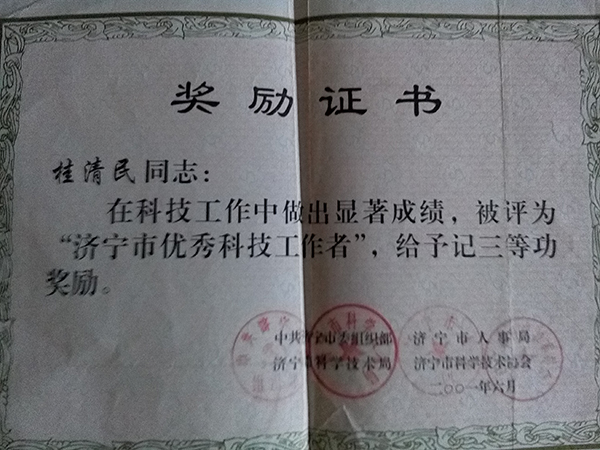 奖励证书
桂清民同志：
在科技工作中做出显著成绩，被评为
“济宁市优秀科技工作者”，给予记三等功
奖励。
中共济宁市委组织部 济宁市人事局
济宁市科学技术局 济宁市科学技术协会
二〇〇一年六月